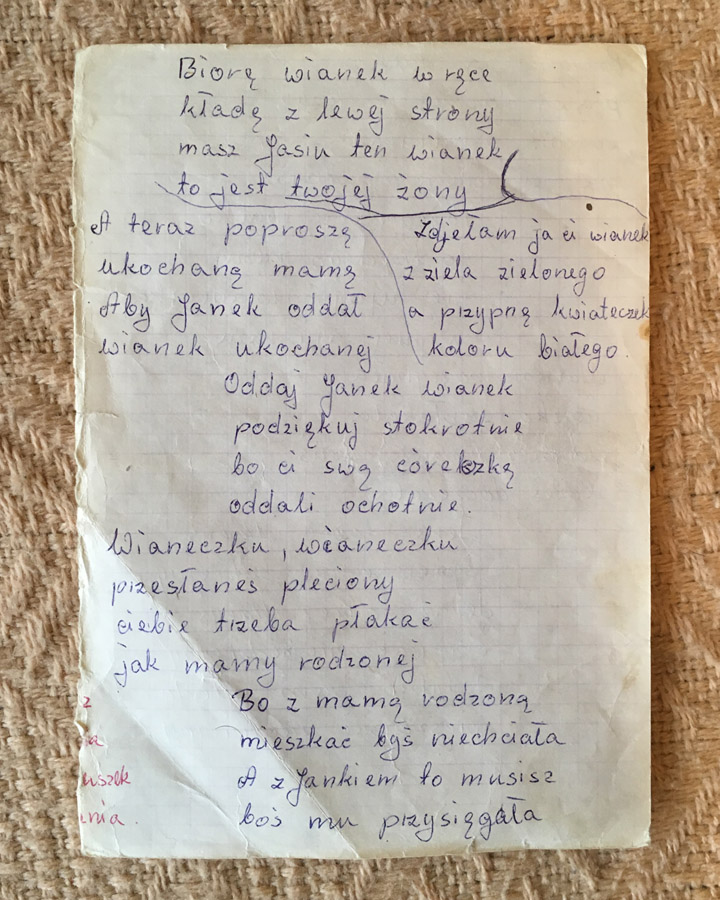 Biorę wianek w ręce
kładę z lewej strony
masz Jasiu ten wianek
to jest twojej żony
A teraz poproszę
ukochaną mamę
Aby Janek oddał
wianek ukochanej
Zdjełam ja ci wianek
z ziela zielonego
a przypnę kwiateczek
koloru białego.
Oddaj Janek wianek
podziękuj stokrotnie
bo ci swą córeczkę
oddali ochotnie.
Wianeczku, wianeczku
przesłaneś pleciony
ciebie trzeba płakać
jak mamy rodzonej
Bo z mamą rodzoną
mieszkać byś niechciała
A z Jankiem to musisz
boś mu przysięgała